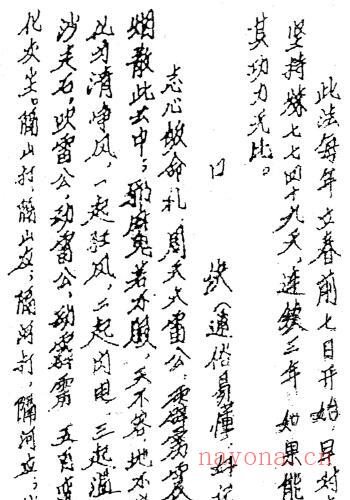 此法每年立春前七日开始,日对
坚持炼七七四十九天,连炼三年,如果能
其功力无比。
口
诀(通俗易懂,好
志心皈命礼,周天大雷公,霹雳震
烟散此云中,邪魔鬼若不服,天不容,地不
化为清净风,一起狂风,二起闪电,三起
沙走石,吹雷公,劝雷公,劝霹雳 五百
化灰尘。隔山打,隔山应,隔河打,隔河应,
nayona.cn